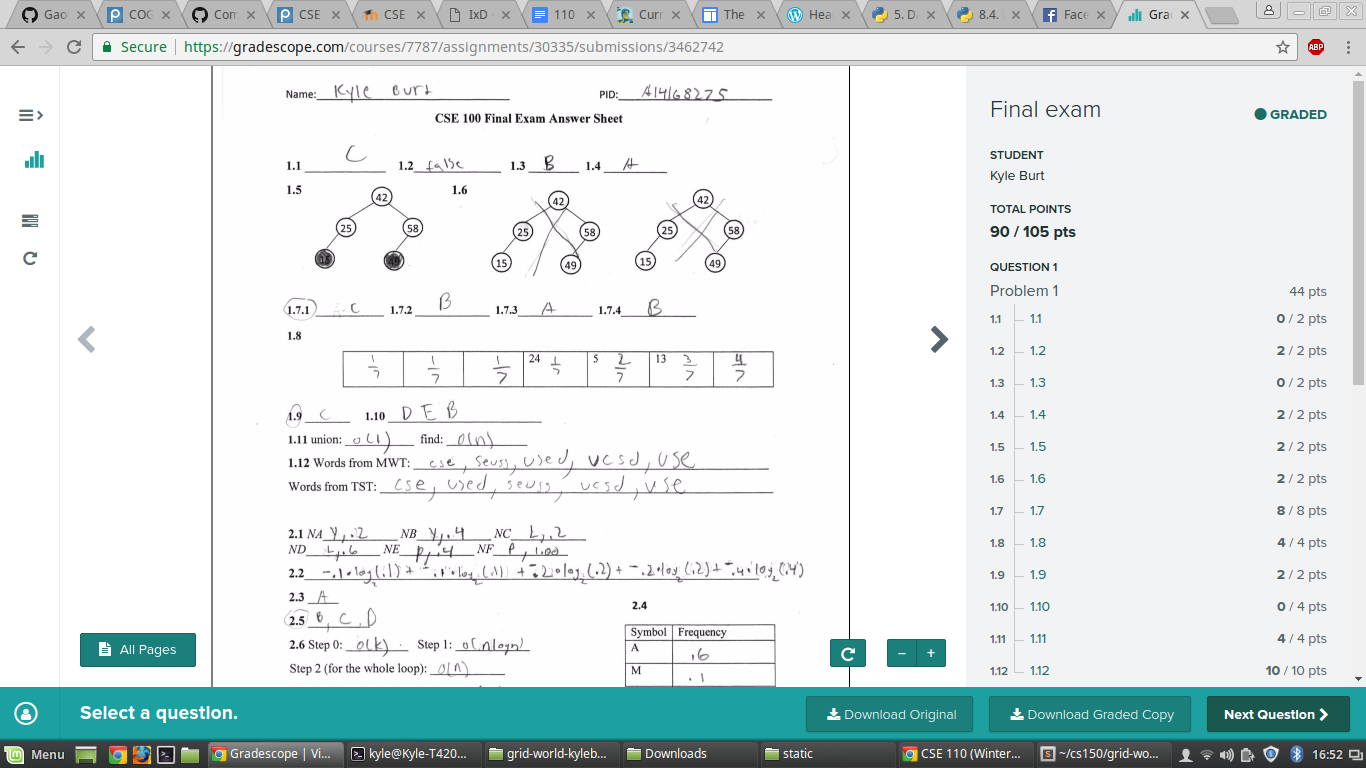 Gao COG Con CSE CSE IxD 110 Curr The Hea 5. D 8.4. Face Grad
Secure https://gradescope.com/courses/7787/assignments/30335/submissions/3462742 ABP
Name: Kyle Burt PID: A14168275
CSE 100 Final Exam Answer Sheet
1.1 C 1.2 false 1.3 B 1.4 A
1.5 1.6
42 42 42
25 58 25 58 25 58
15 49 15 49
1.7.1 C 1.7.2 B 1.7.3 A 1.7.4 B
1.8
1/7 1/7 1/7 24 1/7 5 2/7 13 3/7 4/7
1.9 C 1.10 D E B
1.11 union: o(1) find: o(n)
1.12 Words from MWT: cse, seuss, used, ucsd, use
Words from TST: cse, used, seuss, ucsd, use
2.1 NA Y, .2 NB Y, .4 NC L, .2
ND L, .6 NE P, .4 NF P, 1.00
2.2 -.1•log2(.1) + -.1•log2(.1) + -.2•log2(.2) + -.2•log2(.2) + -.4•log2(.4)
2.3 A
2.4
2.5 B, C, D
Symbol Frequency
2.6 Step 0: o(k) Step 1: o(nlogn)
A .6
Step 2 (for the whole loop): o(n)
M .1
All Pages
− +
Final exam GRADED
STUDENT
Kyle Burt
TOTAL POINTS
90 / 105 pts
QUESTION 1
Problem 1 44 pts
1.1 1.1 0 / 2 pts
1.2 1.2 2 / 2 pts
1.3 1.3 0 / 2 pts
1.4 1.4 2 / 2 pts
1.5 1.5 2 / 2 pts
1.6 1.6 2 / 2 pts
1.7 1.7 8 / 8 pts
1.8 1.8 4 / 4 pts
1.9 1.9 2 / 2 pts
1.10 1.10 0 / 4 pts
1.11 1.11 4 / 4 pts
1.12 1.12 10 / 10 pts
Select a question. Download Original Download Graded Copy Next Question
Menu Gradescope | Vi... kyle@Kyle-T420... grid-world-kyleb... Downloads static CSE 110 (Winter... ~/cs150/grid-wo... 16:52